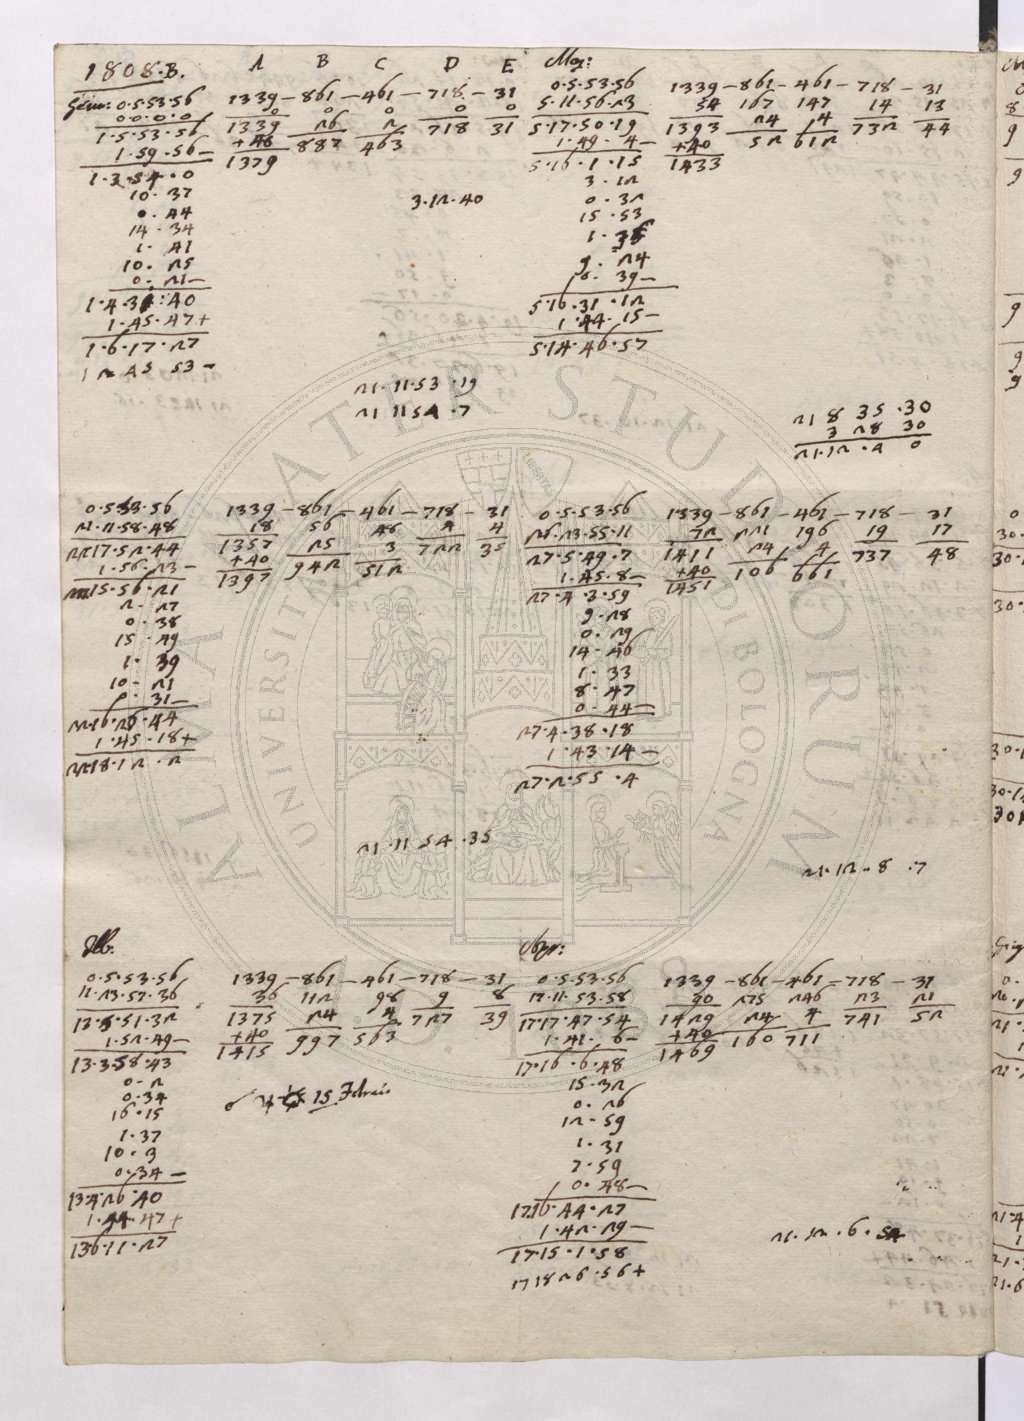 1808.B. A B C D E
0.5.53.56 1339 – 861 – 461 – 718 – 31
0 0.0.0.0 0 0 0 0
1.5.53.56 1339 26 2 718 31
1.59.56 – +40 887 463
1.3.54.0 1379
10.37
0.44
14.34
1.41
10.25
0.21 –
1.4.34.40
1.45.47+
1.6.17.27
12 45 53 –
3.12.40
21.11.53.19
21 11 54.7
0.5.53.56 1339 – 861 – 461 – 718 – 31
5.11.56.23 54 167 147 14 13
5.17.50.19 1393 24 14 732 44
1.49.4 – +40 52 612
5.16.1.15 1433
3.12
0.32
15.53
1.35
9.24
0.39 –
5.16.31.12
1.44.15 –
5.14.46.57
21 8 35.30
3 28 30
21.12.4 0
0.5.53.56 1339 – 861 – 461 – 718 – 31
22.11.58.48 18 56 48 4 4
22.17.52.44 1357 25 3 722 35
1.56.23 – +40 942 512
22.15.56.21 1397
2.27
0.38
15.49
1.39
10.21
0.31 –
22.16.26.44
1.45.18+
22.18.12.2
21.11 54.35
0.5.53.56 1339 – 861 – 461 – 718 – 31
26.23.55.11 72 221 196 19 17
27.5.49.7 1411 24 4 737 48
1.45.8 – +40 106 661
27.4.3.59 1451
9.28
0.29
14.46
1.33
8.47
0.44 –
27.4.38.18
1.43.14 –
27.2.55.4
21.12.8.7
0.5.53.56 1339 – 861 – 461 – 718 – 31
11.23.57.36 36 112 98 9 8
13.5.51.32 1375 24 4 727 39
1.52.49 – +40 997 563
13.3.58.43 1415
0.2
0.34
16.15
1.37
10.3
0.34 –
13.4.26.40
1.44.47+
13 6.11.27
0.5.53.56 1339 – 861 – 461 – 718 – 31
17.11.53.58 90 275 246 23 21
17.17.47.54 1429 24 4 741 52
1.41.6 – +40 160 711
17.16.6.48 1469
15.32
0.26
12.59
1.31
7.59
0.48 –
17.16.44.27
1.42.29 –
17.15.1.58
17 18 26.56+
21.12.6.54
ALMA MATER STUDIORUM
UNIVERSITÀ DI BOLOGNA
A.D. 1088